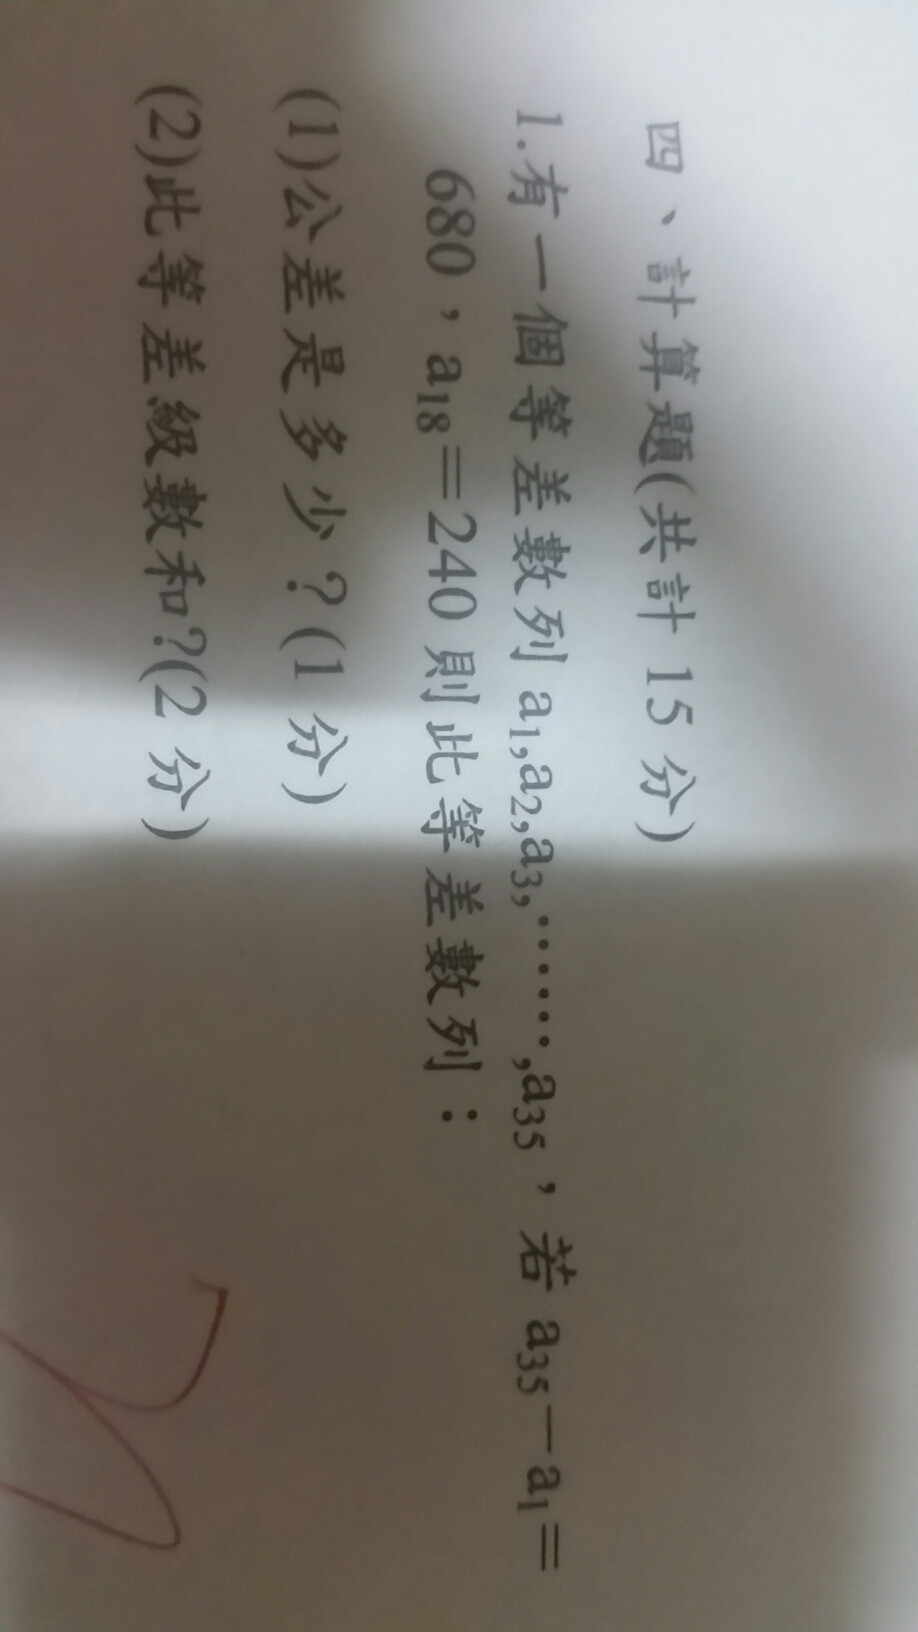 四、計算題(共計 15 分)
1.有一個等差數列 a₁,a₂,a₃,⋯⋯,a₃₅，若 a₃₅－a₁＝
680，a₁₈＝240 則此等差數列：
(1)公差是多少？(1 分)
(2)此等差級數和?(2 分)